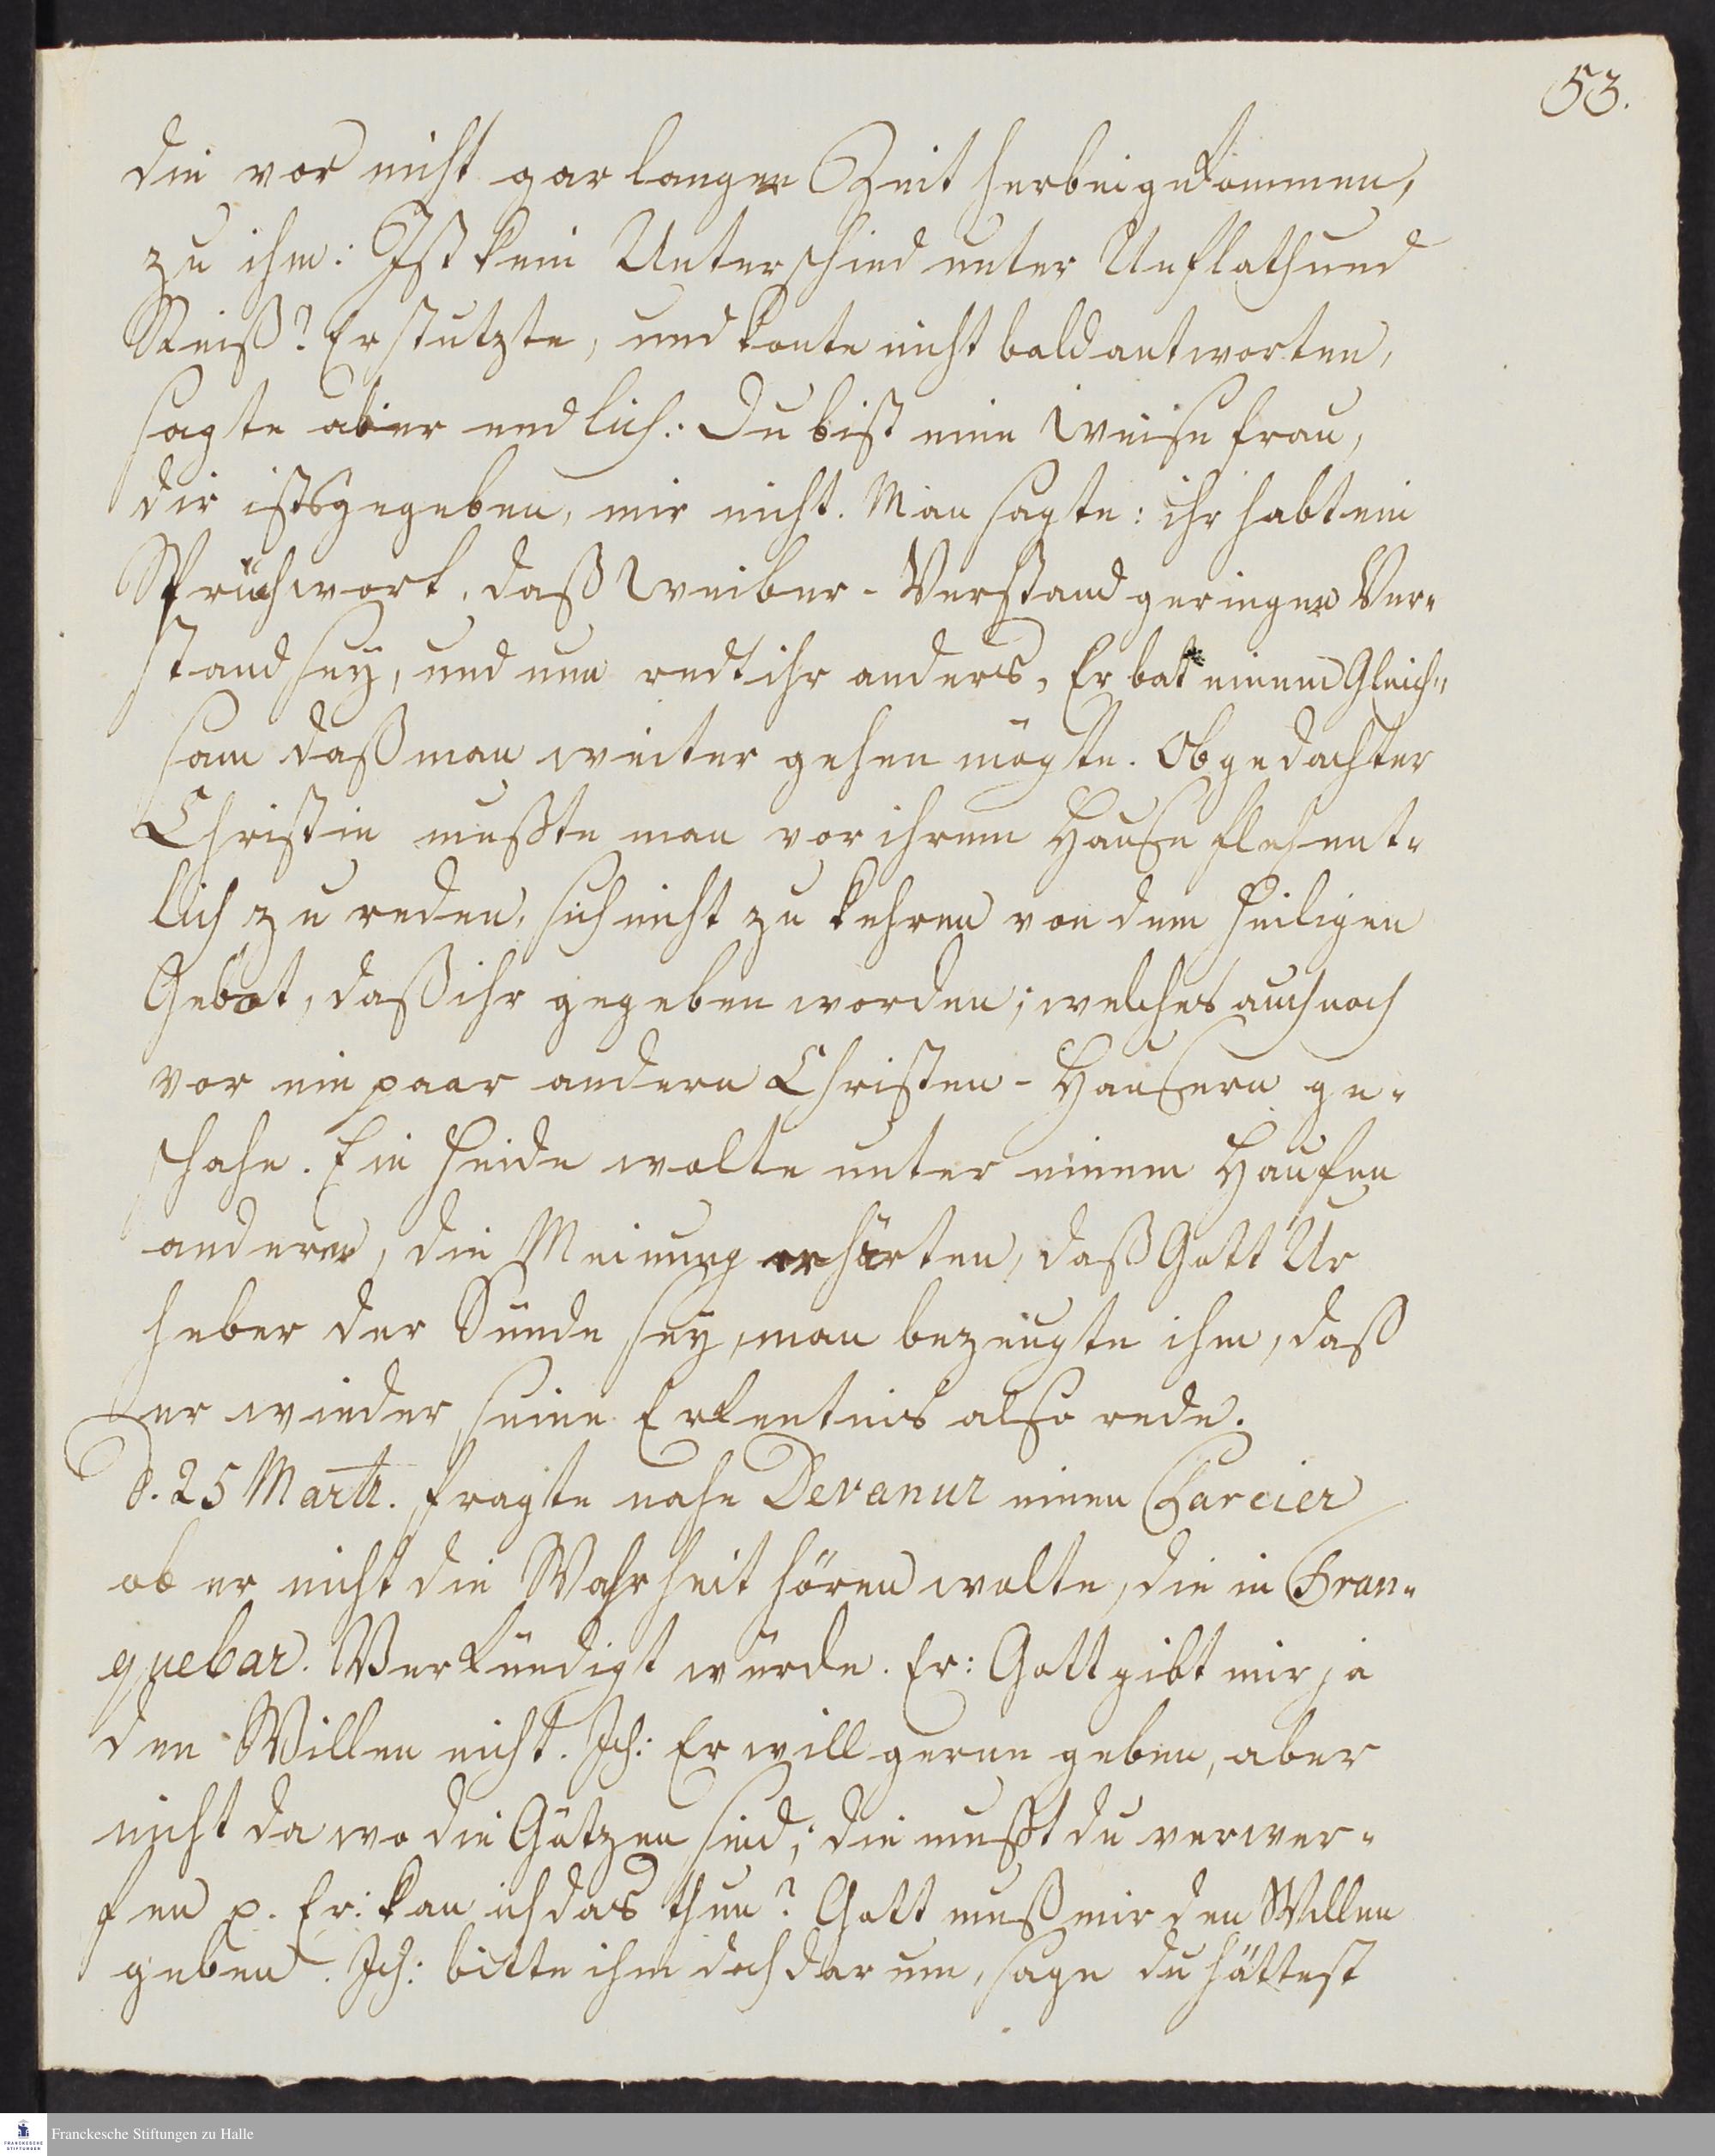 53.
die vor nicht gar langer Zeit herbeigekommen,
zu ihm: Ist kein Unterschied unter Unflath und
Reiß? Er stutzte, und konte nicht bald antworten,
sagte aber endlich: Du bist eine Weise frau,
dir ists gegeben, mir nicht. Man sagte: ihr habt ein
Sprüchwort, daß Weiber-Verstand geringer Ver-
stand sey, und nun redt ihr anders. Er bat einem Gleich-
sam daß man weiter gehen mögte. Obgedachter
Christin mußte man vor ihrem Hause flehent-
lich zu reden, sich nicht zu kehren von dem heiligen
Gebot, daß ihr gegeben worden; welches auch noch
vor ein paar andern Christen-Hausern ge-
schahe. Ein Heide wolte unter einem Haufen
anderer, die Meinung erhärten, daß Gott Ur
heber der Sünde sey, man bezeugte ihm, daß
er wieder seine Erkentnis also rede.
d. 25 Martii. fragte nahe Devanur einen Careier
ob er nicht die Wahrheit hören wolte, die in Tran-
quebar. Verkündigt würde. Er: Gott gibt mir ja
den Willen nicht. Ich: Er will gerne geben, aber
nicht da wo die Götzen sind; die mußt du verwer-
fen p. Er: kan ich das thun? Gott muß mir den Willen
geben. Ich: bitte ihm doch darum, sage du hättest
Franckesche Stiftungen zu Halle
FRANCKESCHE
STIFTUNGEN